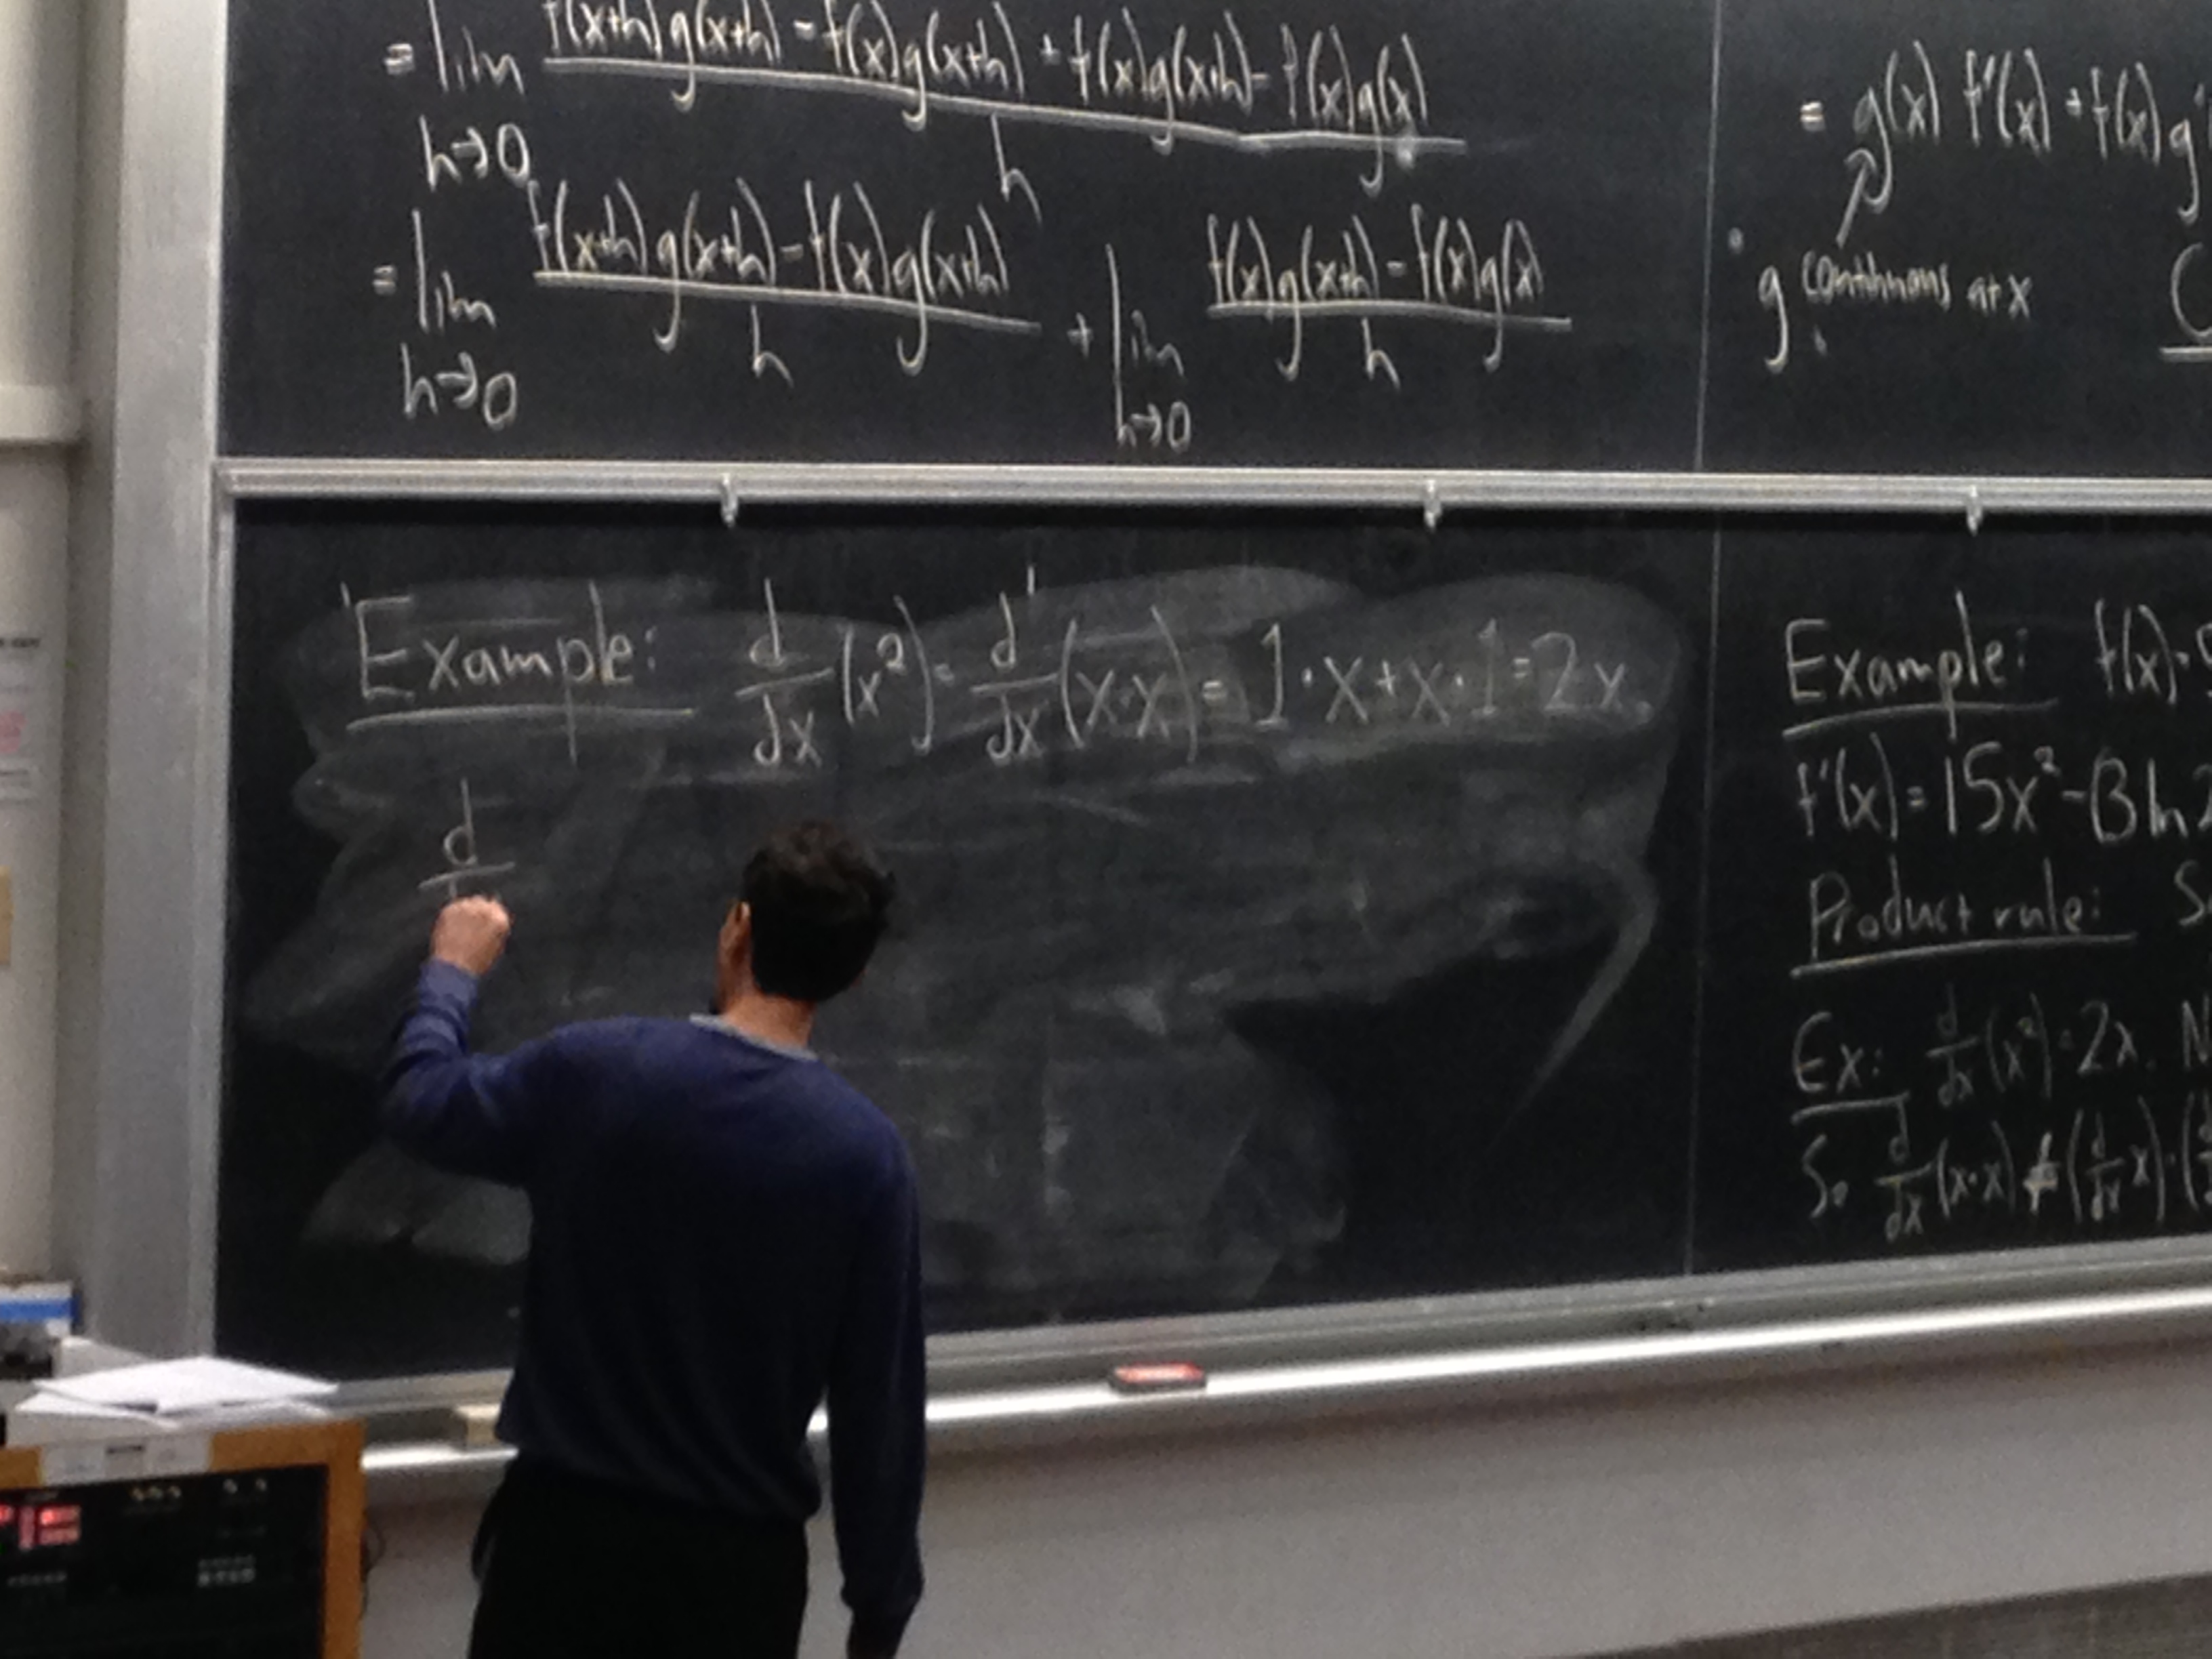 = lim f(x+h)g(x+h) - f(x)g(x+h) + f(x)g(x+h) - f(x)g(x)
h→0 h
= lim f(x+h)g(x+h) - f(x)g(x+h) + lim f(x)g(x+h) - f(x)g(x)
h→0 h h→0 h
= g(x) f'(x) + f(x) g'
g continuous at x
Example: d/dx (x²) = d/dx (x·x) = 1·x + x·1 = 2x.
d
Example: f(x) =
f'(x) = 15x² - 13 ln 2
Product rule:
Ex: d/dx (x²) = 2x.
So d/dx (x·x) ≠ (d/dx x)·(